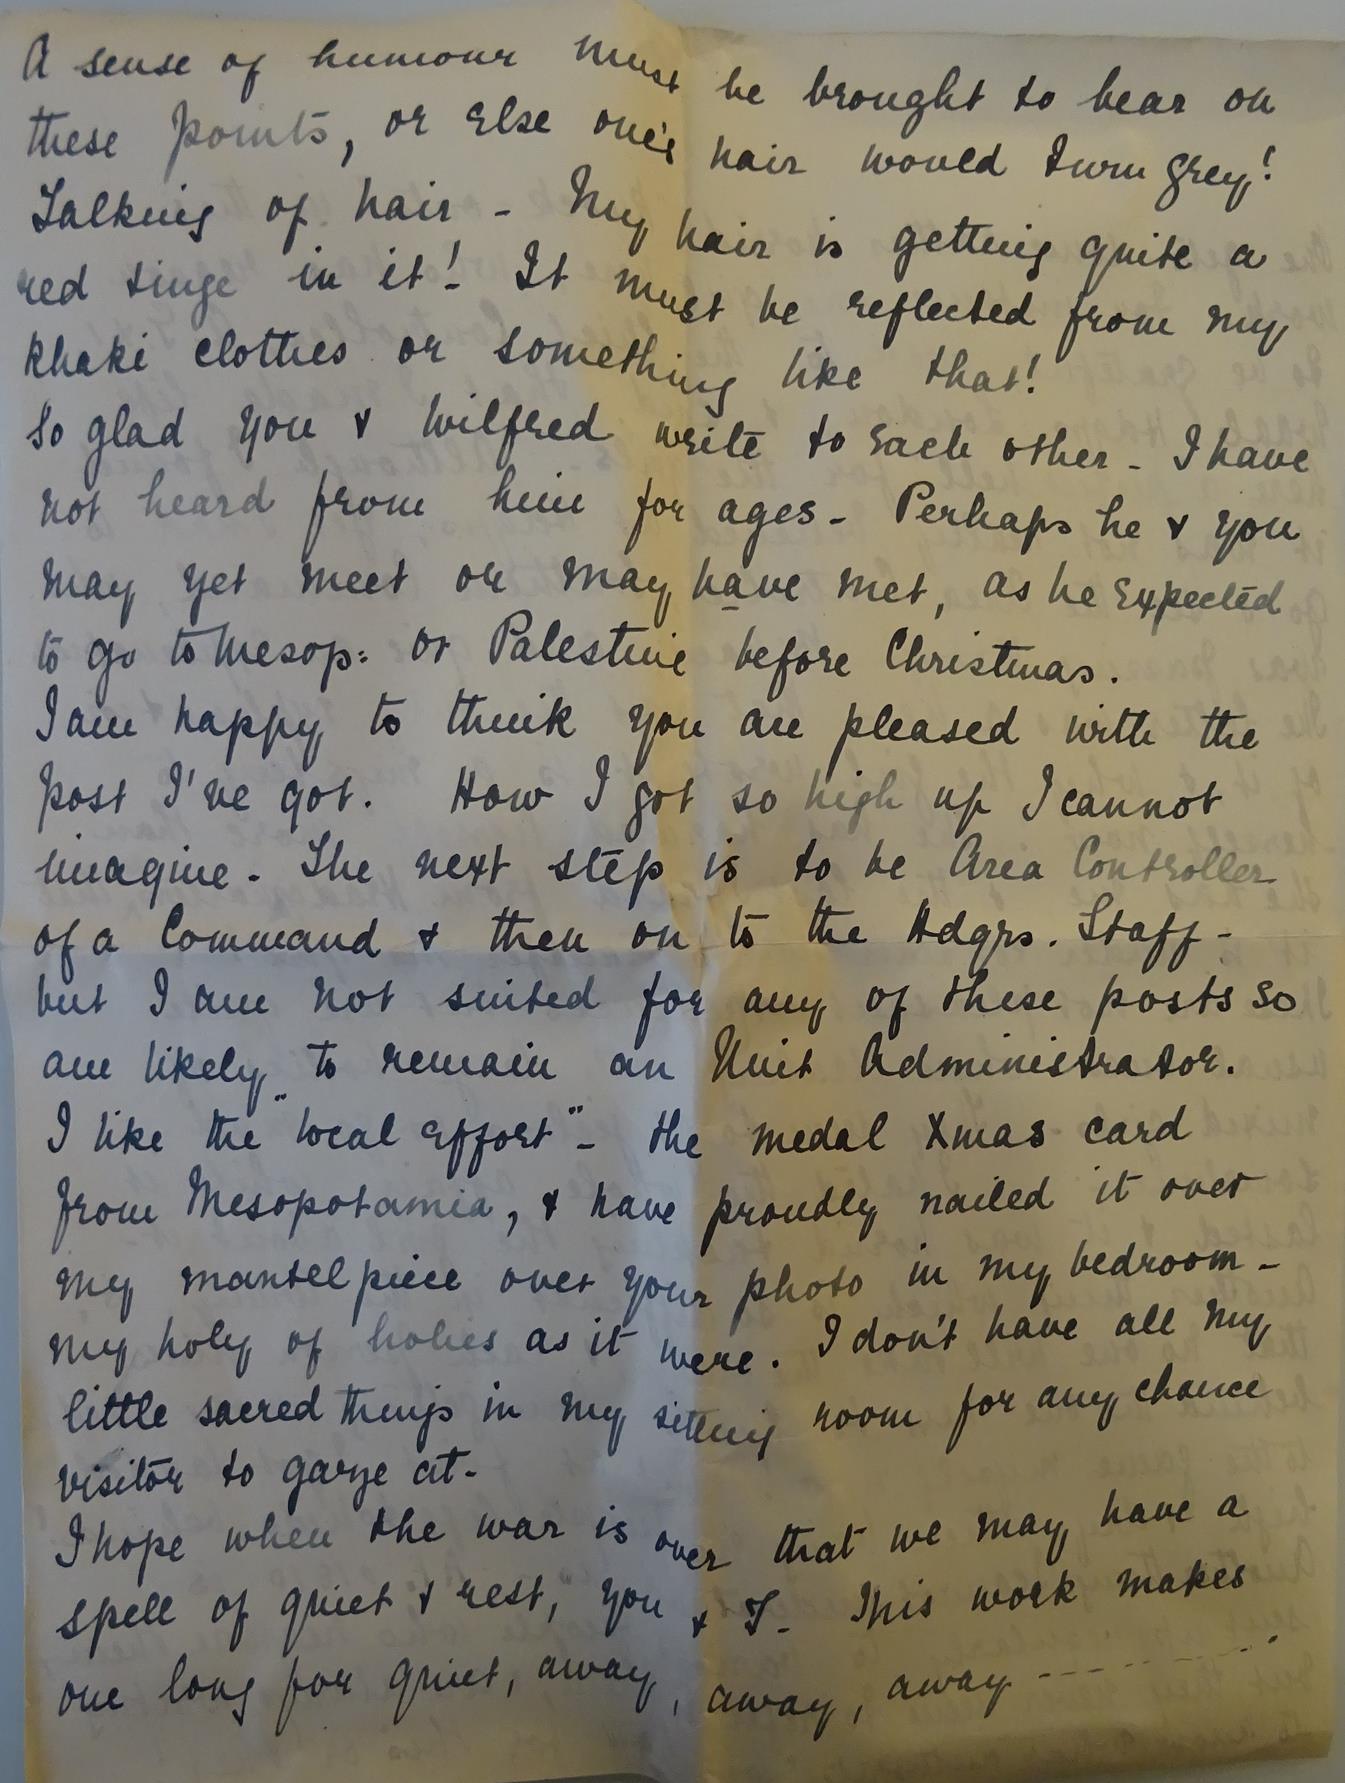 A sense of humour must be brought to bear on
these points, or else one's hair would turn grey!
Talking of hair - My hair is getting quite a
red tinge in it! It must be reflected from my
khaki clothes or something like that!
So glad you & Wilfred write to each other - I have
not heard from him for ages - Perhaps he & you
may yet meet or may have met, as he expected
to go to Mesop: or Palestine before Christmas.
I am happy to think you are pleased with the
post I've got. How I got so high up I cannot
imagine - The next step is to be Area Controller
of a Command & then on to the Hdqrs. Staff -
but I am not suited for any of these posts so
am likely to remain an Unit Administrator.
I like the "local effort" - the medal Xmas card
from Mesopotamia, & have proudly nailed it over
my mantelpiece over your photo in my bedroom -
my holy of holies as it were. I don't have all my
little sacred things in my sitting room for any chance
visitor to gaze at -
I hope when the war is over that we may have a
spell of quiet & rest, you & I - This work makes
one long for quiet, away, away, away ---------